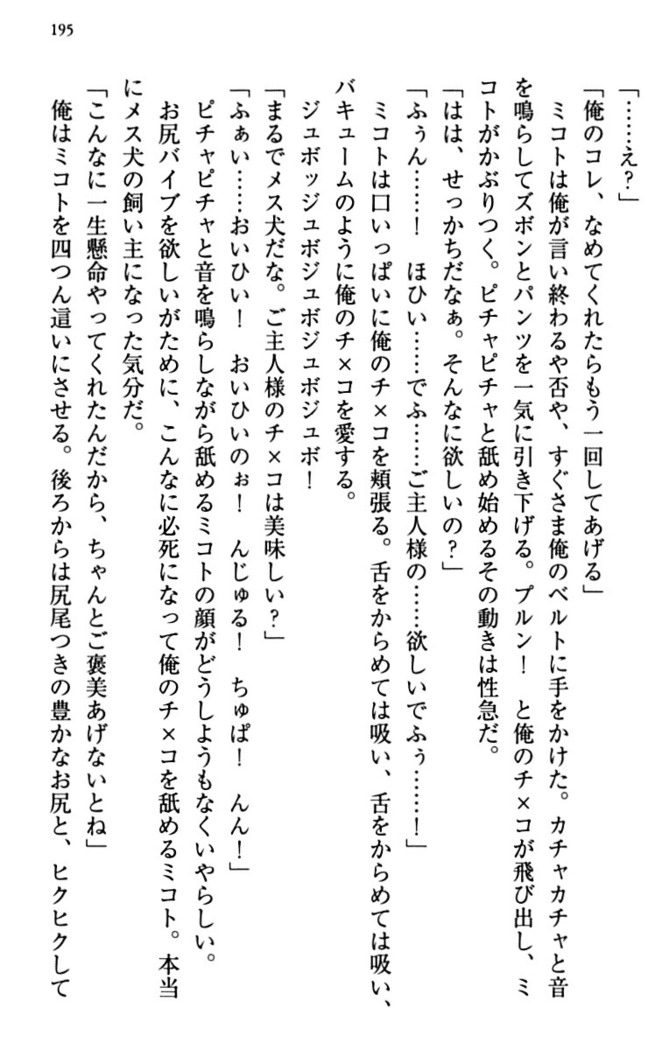 195
「……え？」
「俺のコレ、なめてくれたらもう一回してあげる」
　ミコトは俺が言い終わるや否や、すぐさま俺のベルトに手をかけた。カチャカチャと音
を鳴らしてズボンとパンツを一気に引き下げる。プルン！　と俺のチ×コが飛び出し、ミ
コトがかぶりつく。ピチャピチャと舐め始めるその動きは性急だ。
「はは、せっかちだなぁ。そんなに欲しいの？」
「ふぅん……！　ほひい……でふ……ご主人様の……欲しいでふぅ……！」
　ミコトは口いっぱいに俺のチ×コを頬張る。舌をからめては吸い、舌をからめては吸い、
バキュームのように俺のチ×コを愛する。
　ジュボッジュボジュボジュボジュボ！
「まるでメス犬だな。ご主人様のチ×コは美味しい？」
「ふぁい……おいひい！　おいひいのぉ！　んじゅる！　ちゅぱ！　んん！」
　ピチャピチャと音を鳴らしながら舐めるミコトの顔がどうしようもなくいやらしい。
　お尻バイブを欲しいがために、こんなに必死になって俺のチ×コを舐めるミコト。本当
にメス犬の飼い主になった気分だ。
「こんなに一生懸命やってくれたんだから、ちゃんとご褒美あげないとね」
　俺はミコトを四つん這いにさせる。後ろからは尻尾つきの豊かなお尻と、ヒクヒクして